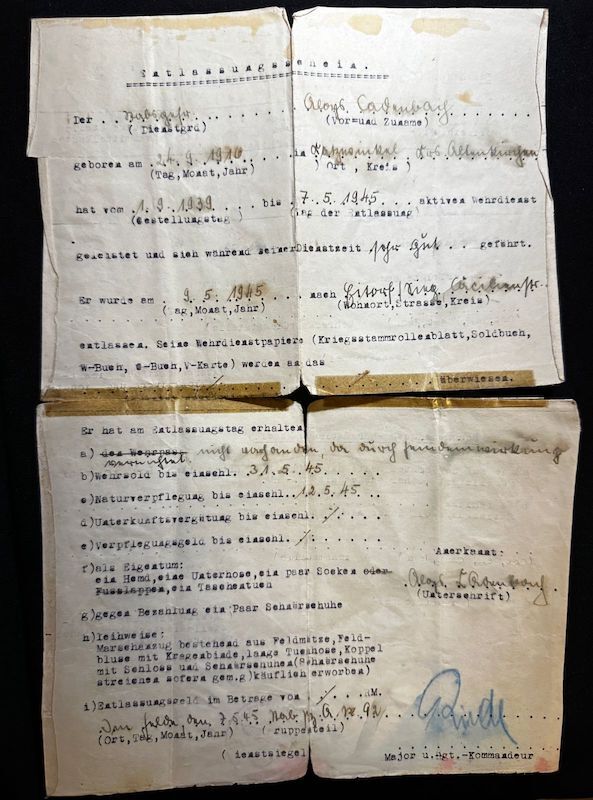 Entlassungsschein.
Der . . Stabsgefr. . . . Aloys Ladenbach
(Dienstgrd) (Vor=und Zuname)
geboren am . 24. 9. 1910 . . . in Altenkirchen
(Tag,Monat,Jahr) ( Ort , Kreis )
hat vom . 1. 9. 1939 . . . . bis . 7. 5. 1945 . . . aktiven Wehrdienst
(Gestellungstag) (Tag der Entlassung)
geleistet und sich während seinerDienstzeit sehr gut . . geführt.
Er wurde am . . 9. 5. 1945 . . . . nach Eitorf/Sieg Cäcilienstr.
(Tag,Monat,Jahr) (Wohnort,Strasse,Kreis)
entlassen. Seine Wehrdienstpapiere (Kriegsstammrollenblatt,Soldbuch,
W-Buch, G-Buch,V-Karte) werden an das
. . . . . . . . . . überwiesen.
Er hat am Entlassungstag erhalten
a) den Wehrpass nicht vorhanden da durch feindeinwirkung
vernichtet
b)Wehrsold bis einschl. . 31. 5. 45. . . .
c)Naturverpflegung bis einschl. . 12. 5. 45. . .
d)Unterkunftsvergütung bis einschl. ./. . . . .
e)Verpflegungsgeld bis einschl. ./. . . . .
Anerkannt:
f)als Eigentum:
ein Hemd,eine Unterhose,ein paar Socken oder
Fusslappen,ein Taschentuch
Aloys Ladenbach
(Unterschrift)
g)gegen Bezahlung ein Paar Schnürschuhe
h)leihweise:
Marschanzug bestehend aus Feldmütze,Feld-
bluse mit Kragenbinde,lange Tuchhose,Koppel
mit Schloss und Schnürschuhen(Schnürschuhe
streichen sofern gem.g)käuflich erworben)
i)Entlassungsgeld im Betrage von ./. . . . RM.
Im Felde, den 7.5.45 92
(Ort,Tag,Monat,Jahr) (Truppenteil)
(Dienstsiegel
Major u.Rgt.-Kommandeur